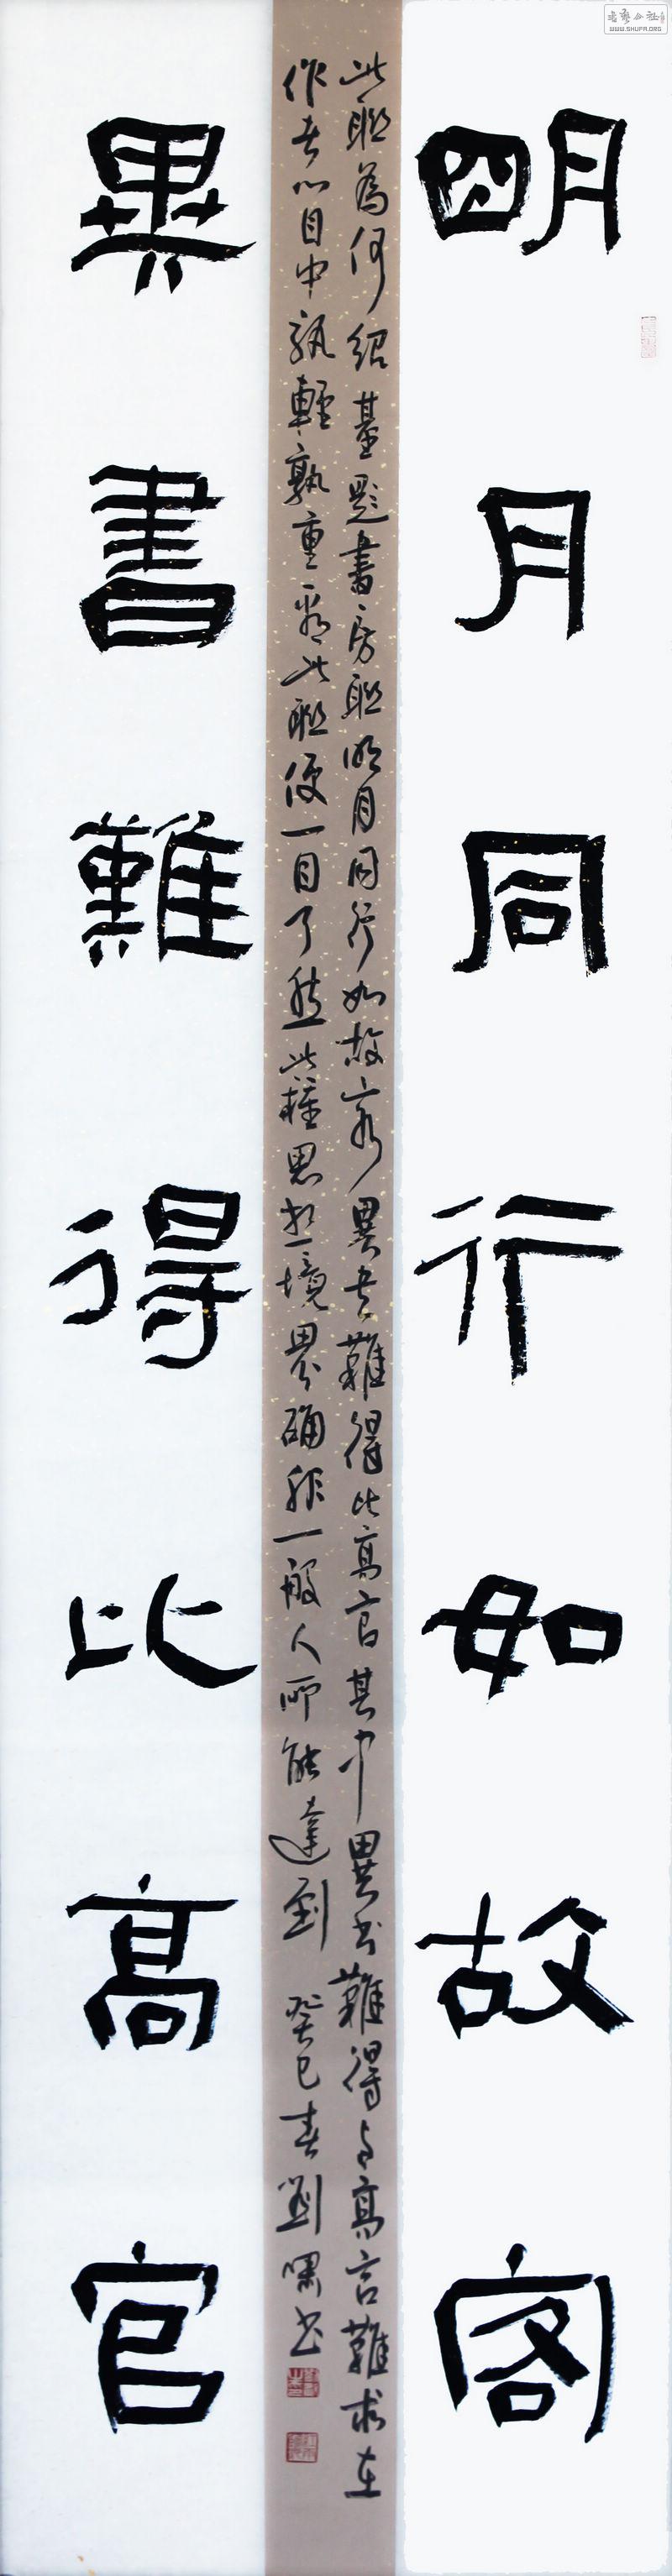 明月同行如故客
此聯為何紹基題書房聯明月同行如故客異書難得比高官其中異書難得與高官難求在
作者心目中孰輕孰重看此聯便一目了然此種思想境界確非一般人所能達到 癸巳春劉嘯書
異書難得比高官
WWW.SHUFA.ORG